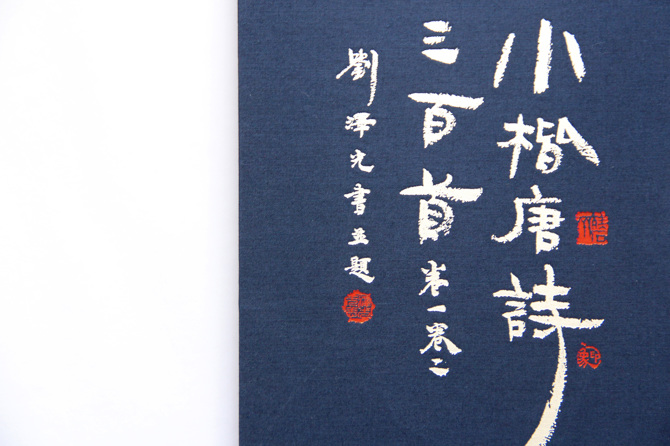 小楷唐詩
三百首
卷一卷二
劉澤光書並題